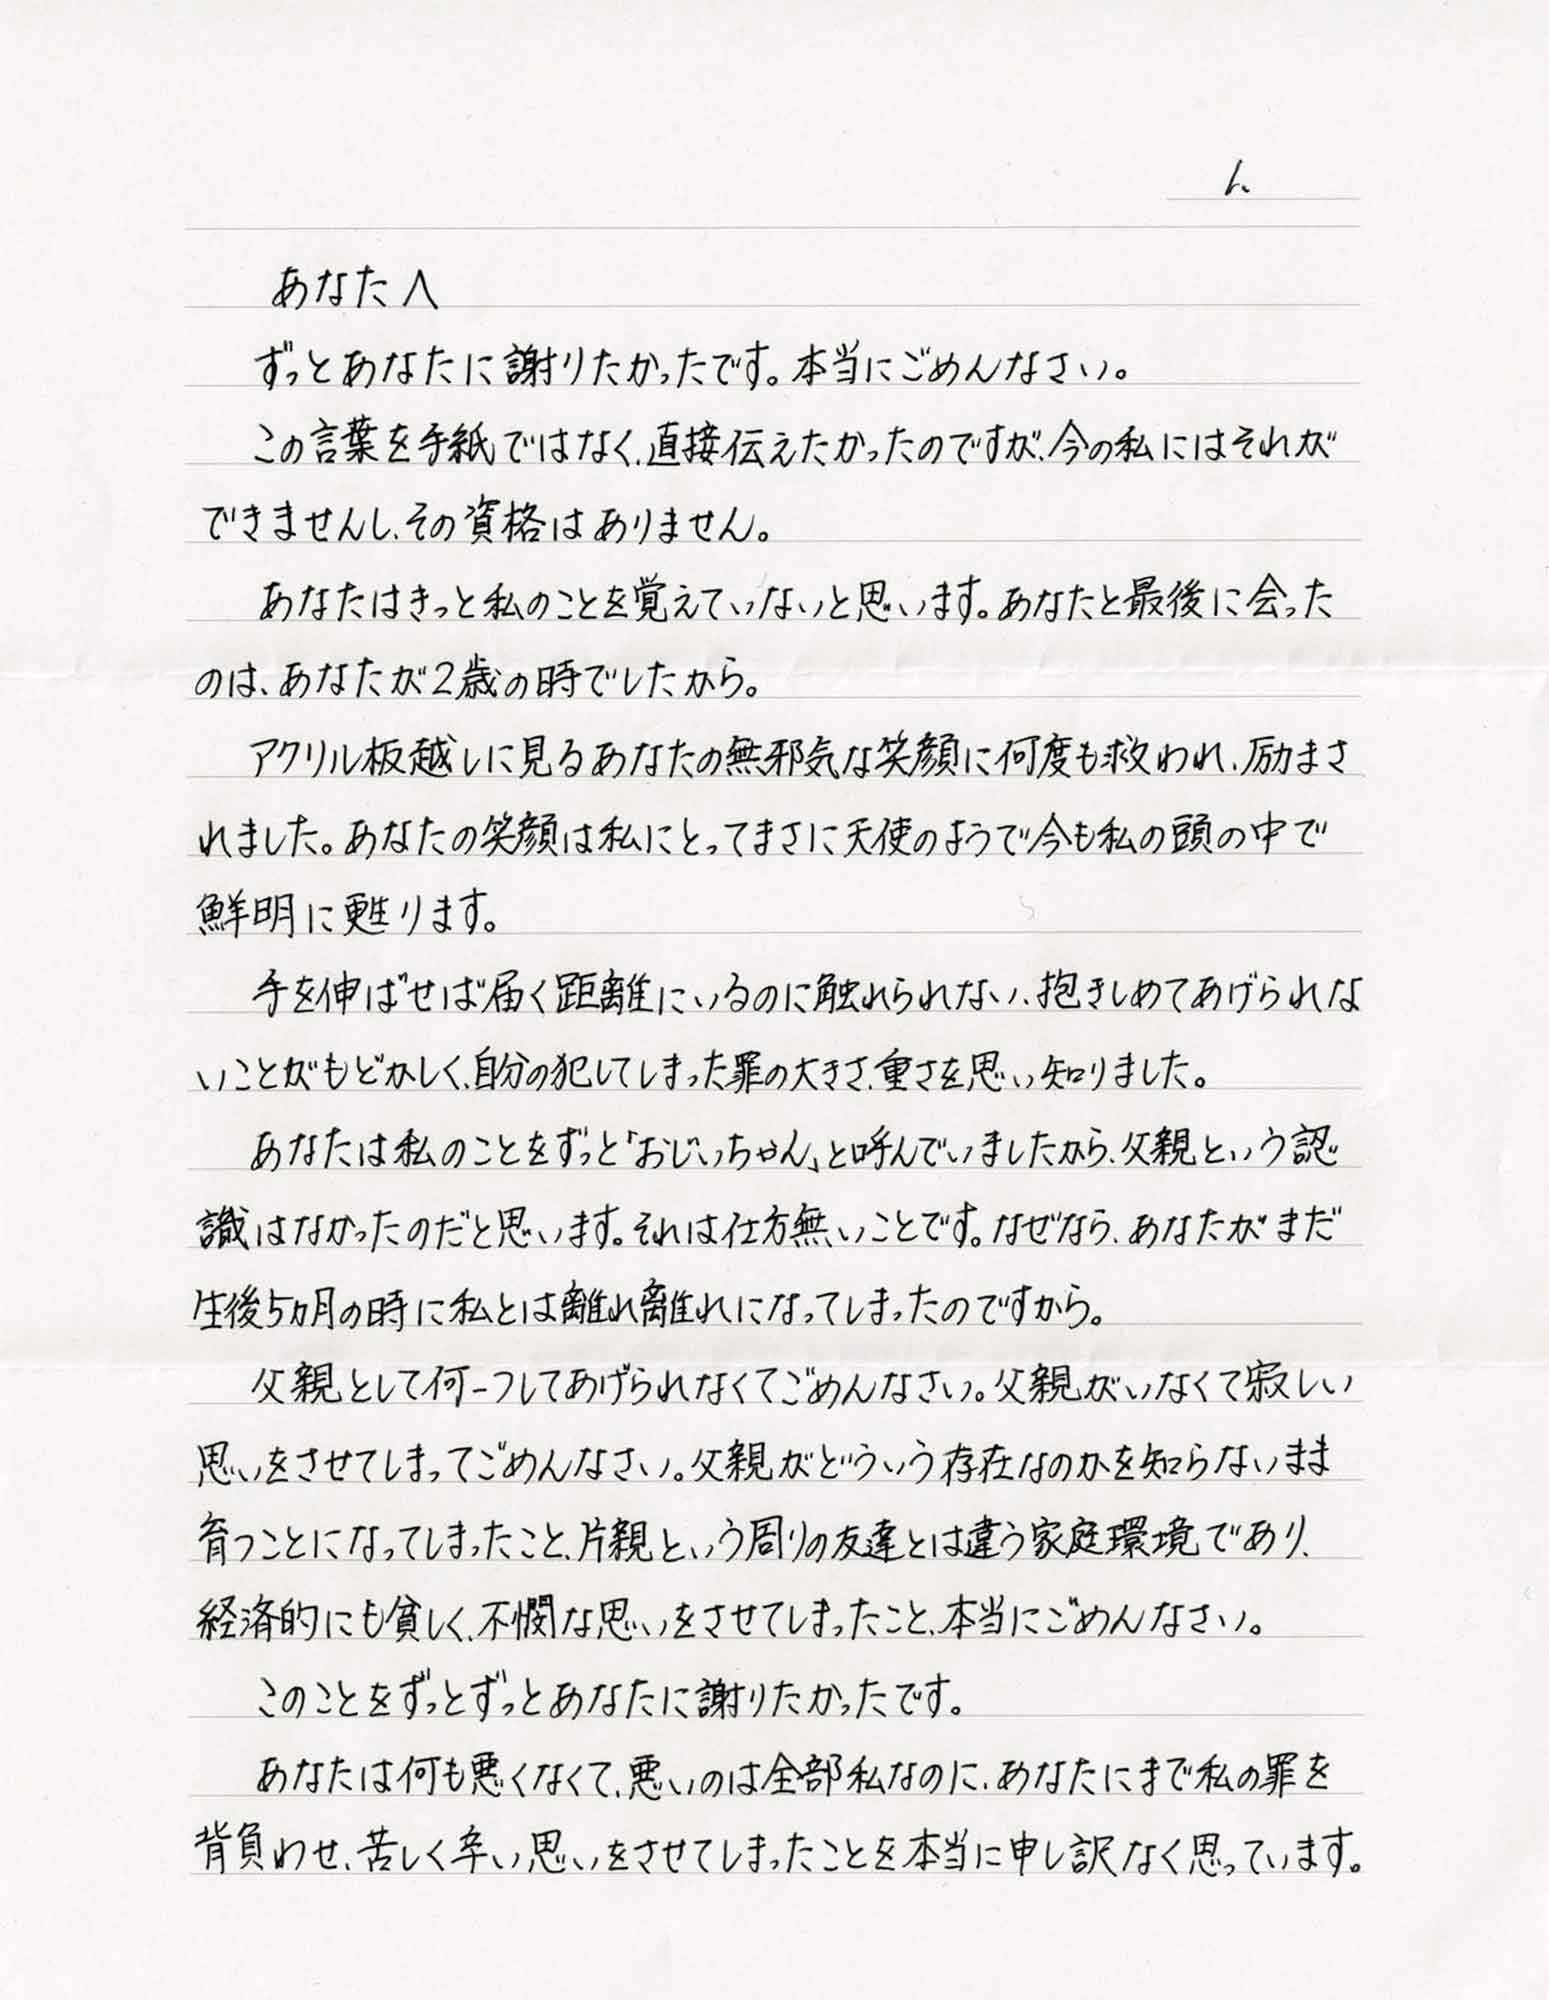 1.
あなたへ
ずっとあなたに謝りたかったです。本当にごめんなさい。
この言葉を手紙ではなく、直接伝えたかったのですが、今の私にはそれが
できませんし、その資格はありません。
あなたはきっと私のことを覚えていないと思います。あなたと最後に会った
のは、あなたが2歳の時でしたから。
アクリル板越しに見るあなたの無邪気な笑顔に何度も救われ、励まさ
れました。あなたの笑顔は私にとってまさに天使のようで今も私の頭の中で
鮮明に甦ります。
手を伸ばせば届く距離にいるのに触れられない、抱きしめてあげられな
いことがもどかしく、自分の犯してしまった罪の大きさ、重さを思い知りました。
あなたは私のことをずっと「おじいちゃん」と呼んでいましたから、父親という認
識はなかったのだと思います。それは仕方無いことです。なぜなら、あなたがまだ
生後5ヵ月の時に私とは離れ離れになってしまったのですから。
父親として何一つしてあげられなくてごめんなさい。父親がいなくて寂しい
思いをさせてしまってごめんなさい。父親がどういう存在なのかを知らないまま
育つことになってしまったこと、片親という周りの友達とは違う家庭環境であり、
経済的にも貧しく、不憫な思いをさせてしまったこと、本当にごめんなさい。
このことをずっとずっとあなたに謝りたかったです。
あなたは何も悪くなくて、悪いのは全部私なのに、あなたにまで私の罪を
背負わせ、苦しく辛い思いをさせてしまったことを本当に申し訳なく思っています。